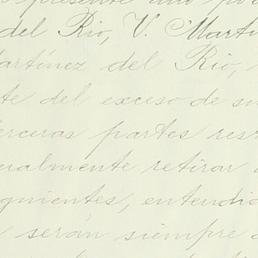 presente
del Rio, V. Martin
artínez del Rio,
te del exceso de su
terceras partes res
ualmente retirar
guientes, entendi
serán siempre